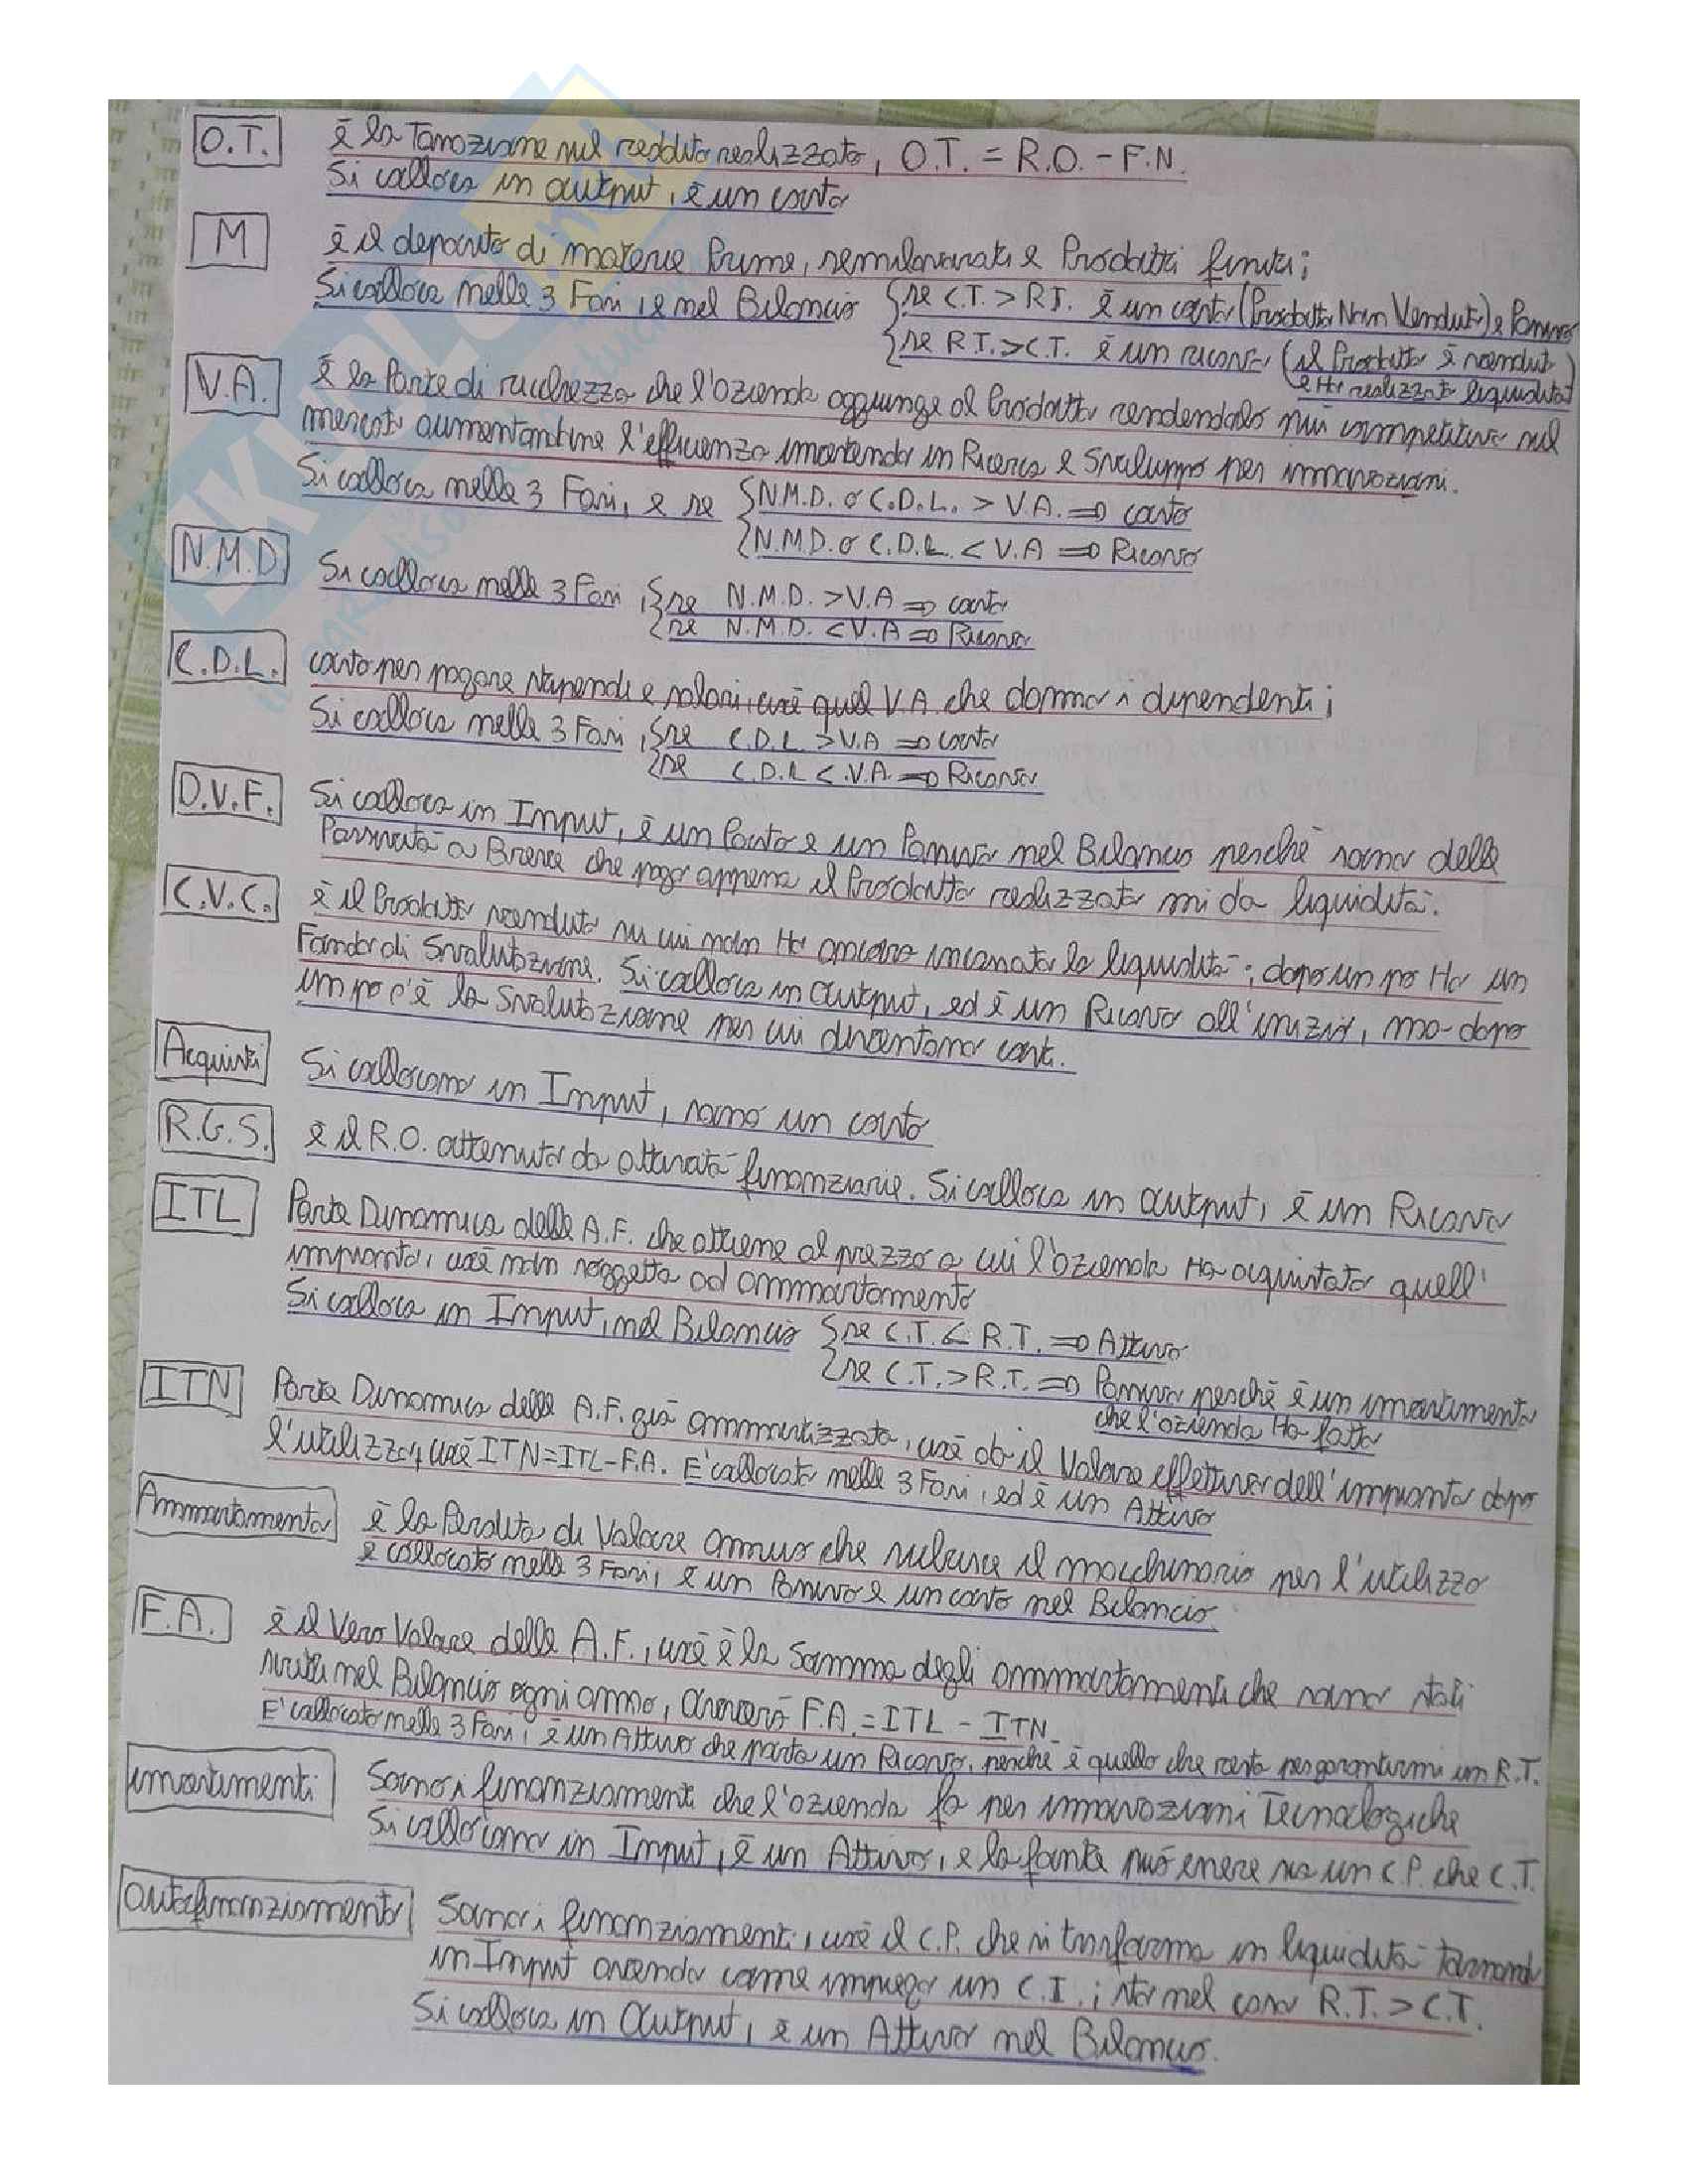 O.T. è la Tassazione sul reddito realizzato, O.T. = R.O. - F.N.
Si colloca in output, è un costo
M è il deposito di materie Prime, semilavorati e Prodotti finiti;
Si colloca nelle 3 Fasi, e nel Bilancio { se C.T. > R.T. è un costo (Prodotto Non Venduto) e Passivo
{ se R.T. > C.T. è un ricavo (il Prodotto è venduto
e Ho realizzato liquidità)
V.A. è la Parte di ricchezza che l'azienda aggiunge al Prodotto rendendolo più competitivo sul
mercato aumentandone l'efficienza investendo in Ricerca e Sviluppo per innovazioni.
Si colloca nelle 3 Fasi, e se { N.M.D. o C.D.L. > V.A. => costo
{ N.M.D. o C.D.L. < V.A => Ricavo
N.M.D. Si colloca nelle 3 Fasi, { se N.M.D. > V.A => costo
{ se N.M.D. < V.A => Ricavo
C.D.L. costo per pagare stipendi e salari, cioè quel V.A. che danno i dipendenti;
Si colloca nelle 3 Fasi, { se C.D.L. > V.A => costo
{ se C.D.L < V.A. => Ricavo
D.V.F. Si colloca in Input, è un costo e un Passivo nel Bilancio perchè sono delle
Passività a Breve che pago appena il Prodotto realizzato mi dà liquidità.
C.V.C. è il Prodotto venduto su cui non Ho ancora incassato la liquidità; dopo un po Ho un
Fondo di Svalutazione. Si colloca in output, ed è un Ricavo all'inizio, ma dopo
un po c'è la Svalutazione per cui diventano costi.
Acquisti Si collocano in Input, sono un costo
R.G.S. è il R.O. ottenuto da attività finanziarie. Si colloca in output, è un Ricavo
ITL Parte Dinamica delle A.F. che attiene al prezzo a cui l'azienda Ha acquistato quell'
impianto, cioè non soggetto ad ammortamento
Si colloca in Input, nel Bilancio { se C.T. < R.T. => Attivo
{ se C.T. > R.T. => Passivo perchè è un investimento
che l'azienda Ha fatto
ITN Parte Dinamica delle A.F. già ammortizzata, cioè dà il Valore effettivo dell'impianto dopo
l'utilizzo, cioè ITN = ITL - F.A. E' collocato nelle 3 Fasi, ed è un Attivo
Ammortamento è la Perdita di Valore annuo che subisce il macchinario per l'utilizzo
è collocato nelle 3 Fasi, è un Passivo e un costo nel Bilancio.
F.A. è il Vero Valore delle A.F., cioè è la Somma degli ammortamenti che sono stati
nel Bilancio ogni anno, F.A. = ITL - ITN.
E' collocato nelle 3 Fasi, è un Attivo che porta un Ricavo, perchè è quello che resta per garantirmi un R.T.
investimenti Sono i finanziamenti che l'azienda fa per innovazioni Tecnologiche
Si collocano in Input, è un Attivo, e la fonte può essere sia un C.P. che C.T.
autofinanziamento Sono i finanziamenti, cioè il C.P. che si trasforma in liquidità Tornando
in Input avendo come impiego un C.I.; sto nel caso R.T. > C.T.
Si colloca in Output, è un Attivo nel Bilancio.